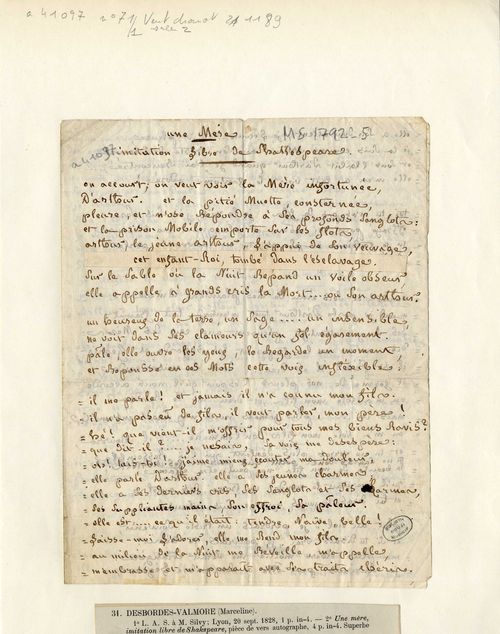 a 41097 n° 71/ Vent 21 1189
une Mère
MS 1792-5
a 41097
imitation libre de Shakespeare
on accourt; on veut voir la Mère infortunée,
D'arthur. et la pitié Muette, consternée,
pleure, et n'ose Répondre à Ses profonds Sanglots:
et la prison Mobile emporte Sur les flots
arthur, le jeune arthur, l'appui de Son veuvage,
cet enfant-Roi, tombé dans l'esclavage.
Sur le Sable où la Nuit Répand un voile obscur
elle appelle à grands cris la Mort.... ou Son arthur.
un heureux de la terre, un Sage.... un insensible,
ne voit dans Ses clameurs qu'un fol égarement.
pâle, elle ouvre les yeux, le Regarde un moment,
et Repousse en ces Mots cette voix inflexible:
= il me parle! et jamais il n'a connu mon fils.
= il n'a pas eu de fils, il veut parler, mon père!
= hé! que vient-il m'offrir pour tous mes biens Ravis?
= que dit-il? .... je Sa voix me désespère:
= j'aime mieux écouter ma Douleur.
= elle parle D'arthur elle a Ses jeunes charmes
= elle a Ses Derniers cris, Ses Sanglots et Ses Larmes,
= Ses Suppliantes mains, Son effroi, Sa pâleur.
= elle est..... ce qu'il était: tendre, Naïve, belle!
= laisse-moi l'adorer, elle me Rend mon fils.
= au milieu de la Nuit me Réveille m'appelle,
= m'embrasse et m'apparaît avec Ses traits chéris.
31. DESBORDES-VALMORE (Marceline).
1° L. A. S. à M. Silvy; Lyon, 20 sept. 1828, 1 p. in-4. — 2° Une mère,
imitation libre de Shakspeare, pièce de vers autographe, 4 p. in-4. Superbe